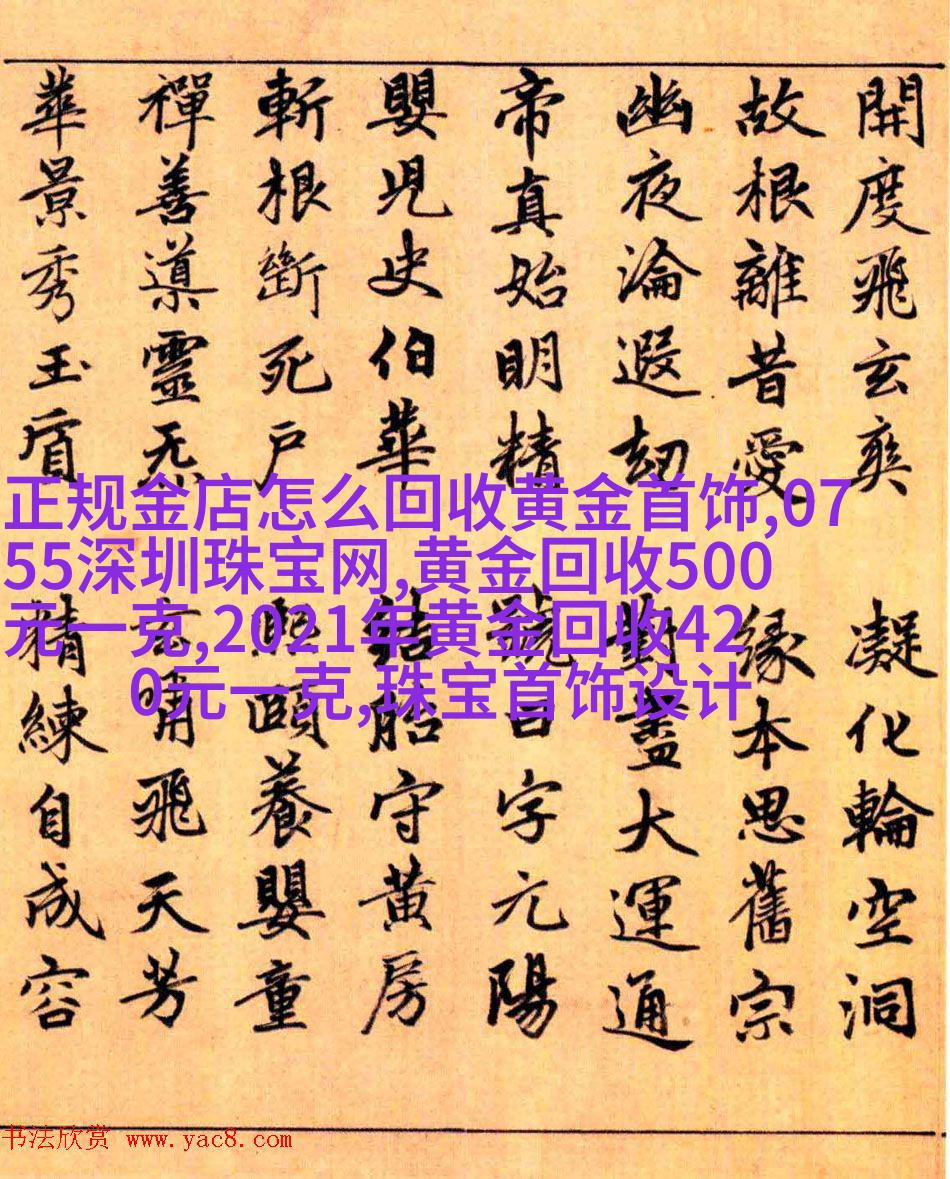 開度飛玄爽 凝化輪空洞
故根離昔愛 緣本思舊宗
幽夜淪遐劫 對盡大運通
帝真始明精 號曰字元陽
嬰兒史伯華 結胎守黃房
斬根斷死戶 熙頤養嬰童
禪善導靈炁 玄哺飛天芳
華景秀玉 精練自成容
正规金店怎么回收黄金首饰,07
55深圳珠宝网,黄金回收500
元一克,2021年黄金回收42
0元一克,珠宝首饰设计
书法欣赏 www.yac8.com